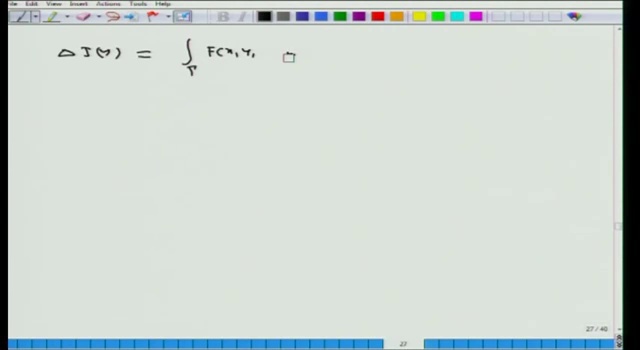 File Edit View Insert Actions Tools Help
Δ J(y) = ∫ F(x, y,
Γ
27 / 40
27